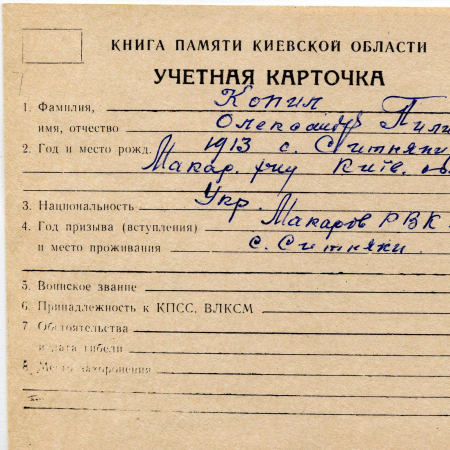 КНИГА ПАМЯТИ КИЕВСКОЙ ОБЛАСТИ
УЧЕТНАЯ КАРТОЧКА
1. Фамилия, Копил
имя, отчество Олександр Пили
2. Год и место рожд. 1913 с. Ситняки
Макар. р-ну Київ. об
3. Национальность Укр.
4. Год призыва (вступления) Макаров РВК
и место проживания с. Ситняки
5. Воинское звание
6. Принадлежность к КПСС, ВЛКСМ
7. Обстоятельства
и дата гибели
8. Место захоронения